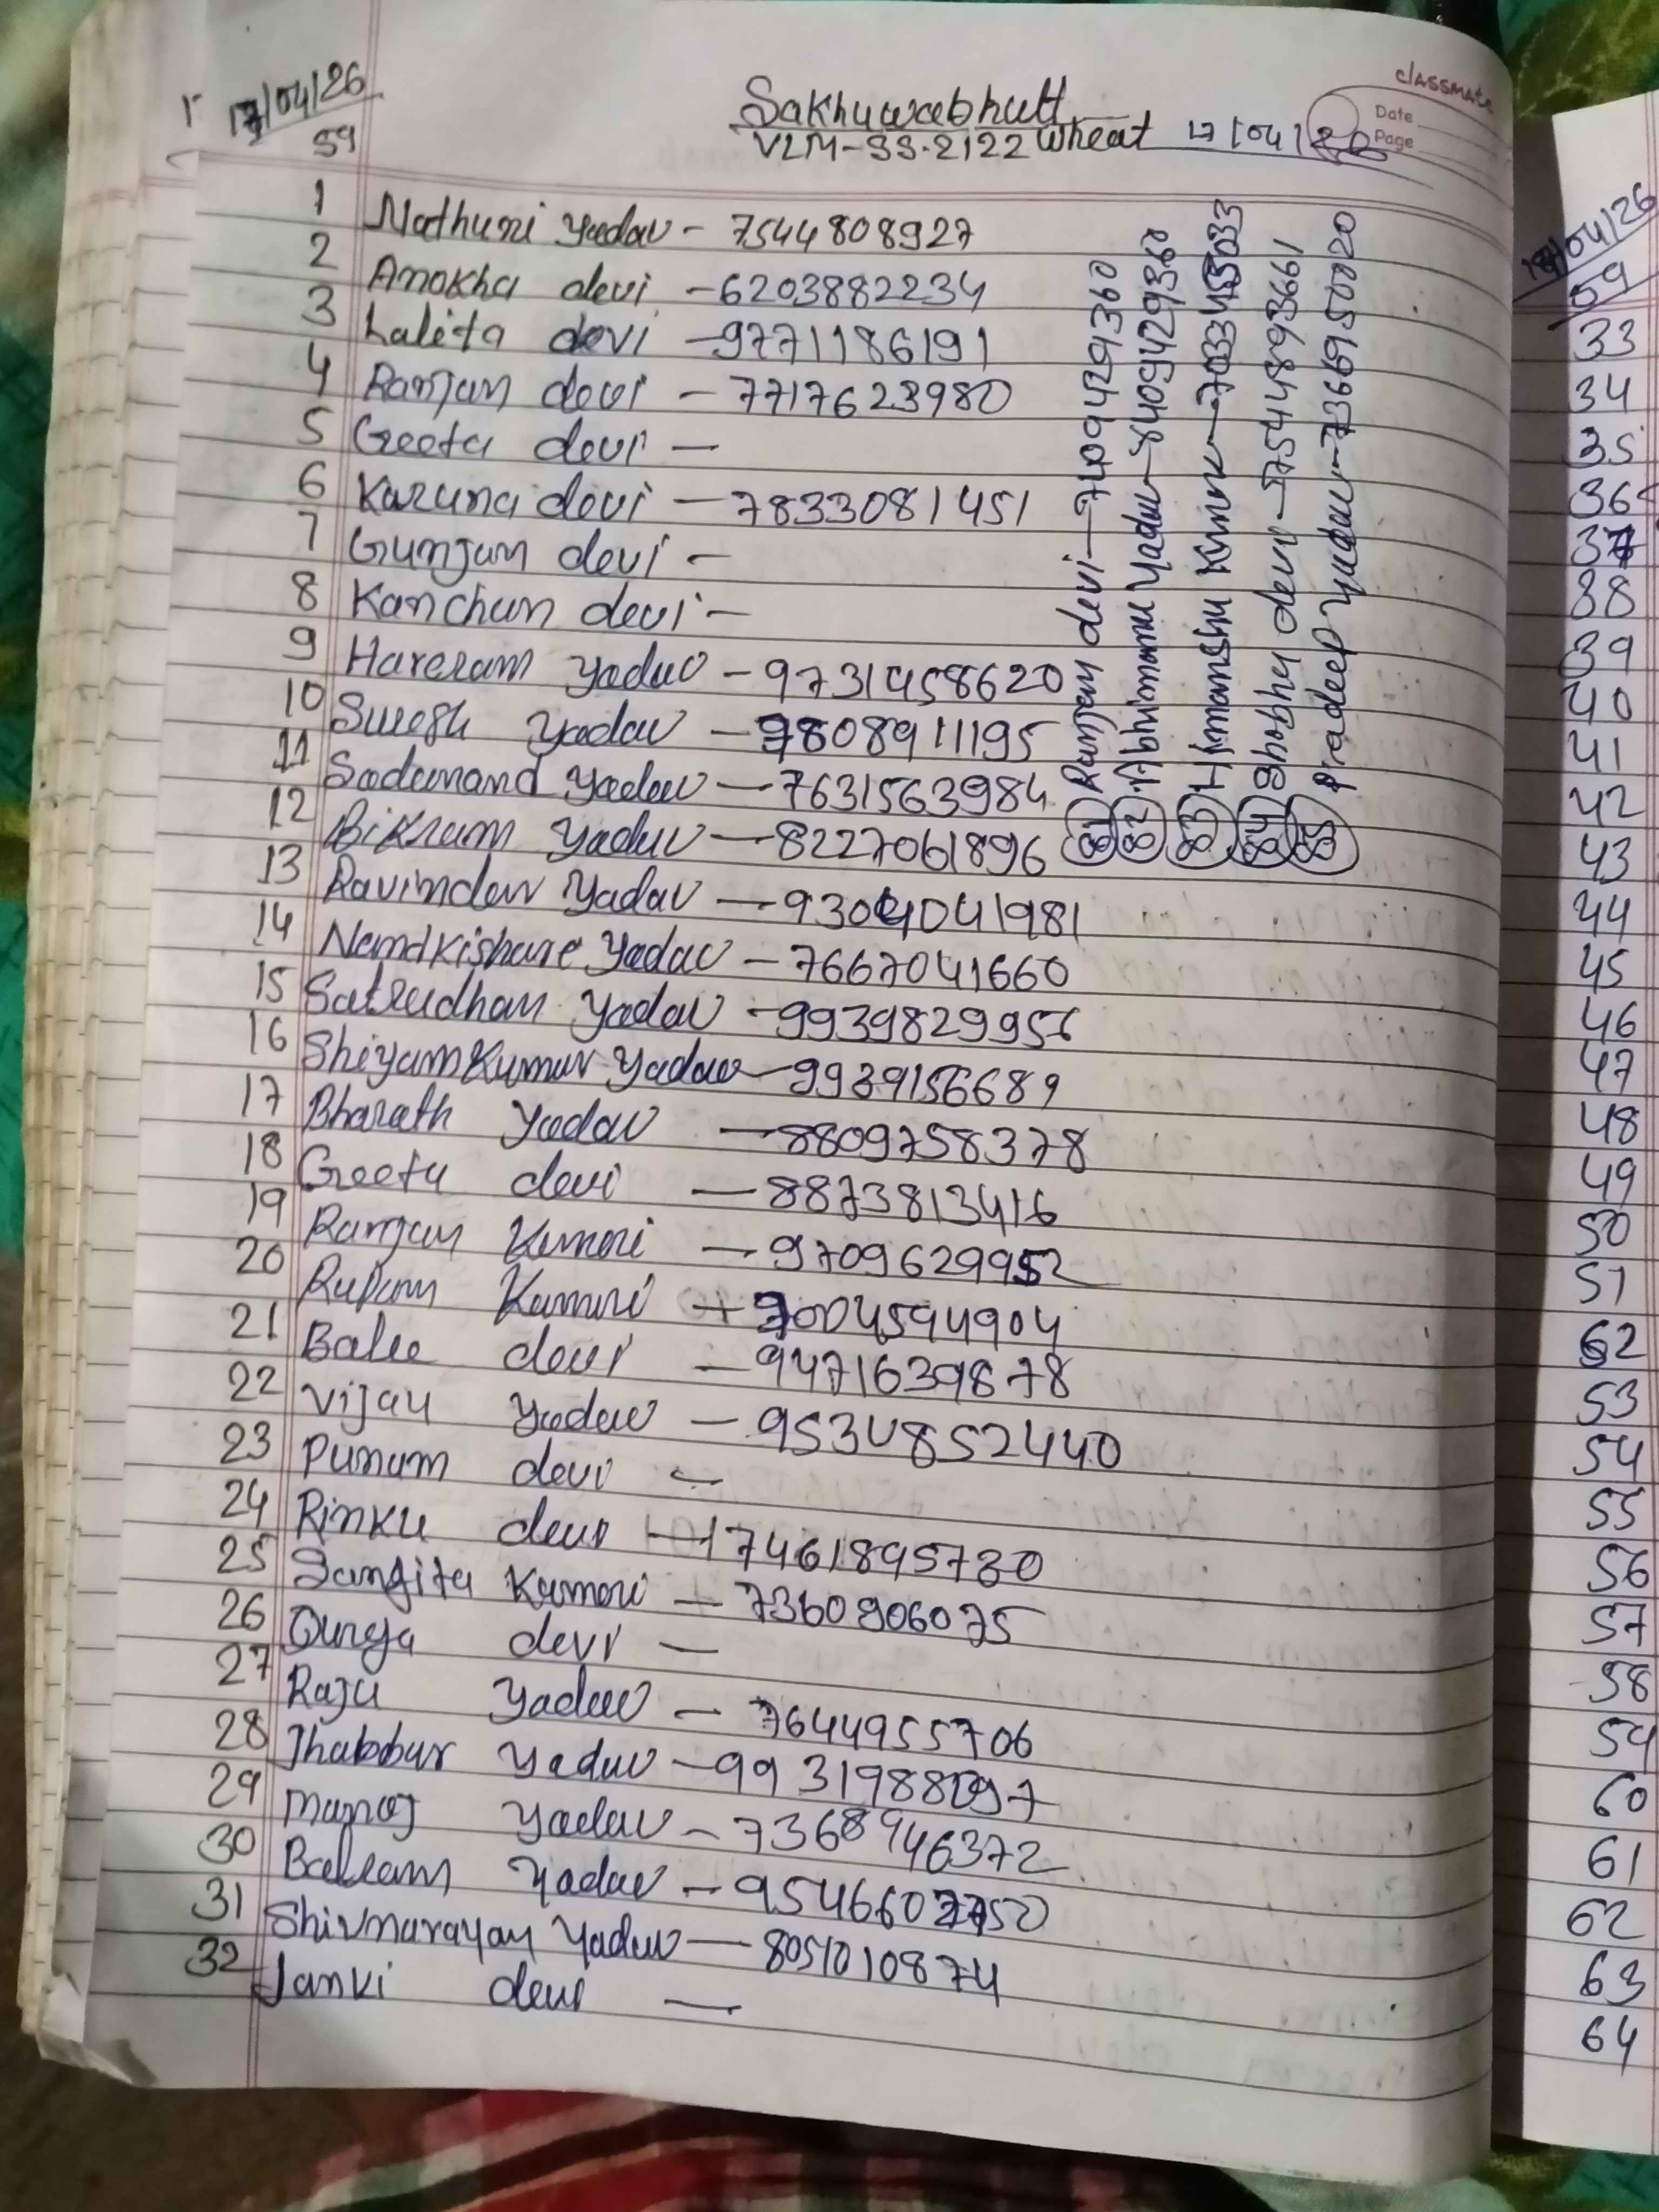 17/04/26
59
Sakhuwabhutt
VLM-SS-2122 Wheat 17/04/26
classmate
Date
Page
1 Nathuni Yadav - 7544808927
2 Anokha devi - 6203882234
3 Lalita devi - 9771186191
4 Ranjan devi - 7717623980
5 Geeta devi -
6 Karuna devi - 7833081451
7 Gunjan devi -
8 Kanchan devi -
9 Hareram Yadav - 9731458620
10 Suresh Yadav - 9808911195
11 Sadanand Yadav - 7631563984
12 Bikram Yadav - 8227061896
13 Ravinder Yadav - 9304041981
14 Nandkishore Yadav - 7667041660
15 Satrudhan Yadav - 9939829956
16 Shiyam Kumar Yadav - 9939156689
17 Bharath Yadav - 8809758378
18 Geeta devi - 8873813416
19 Ranjan Kumari - 9709629952
20 Rupam Kumari - 7004594904
21 Balee devi - 9471639878
22 Vijay Yadav - 9534852440
23 Punam devi -
24 Rinku devi - 7461895730
25 Sangita Kumari - 7360906075
26 Durga devi -
27 Raju Yadav - 7644955706
28 Jhabbur Yadav -
29 Manoj Yadav - 7368946372
30 Balram Yadav -
31 Shivnarayan Yadav - 8051010874
32 Janki devi -
81 Ranjan devi -
82 Abhimanu Yadav - 8409429360
83 Himanshu Kumar -
84 Shobha devi - 7544893661
85 Pradeep Yadav -
18/04/26
59
33
34
35
36
37
38
39
40
41
42
43
44
45
46
47
48
49
50
51
52
53
54
55
56
57
58
59
60
61
62
63
64